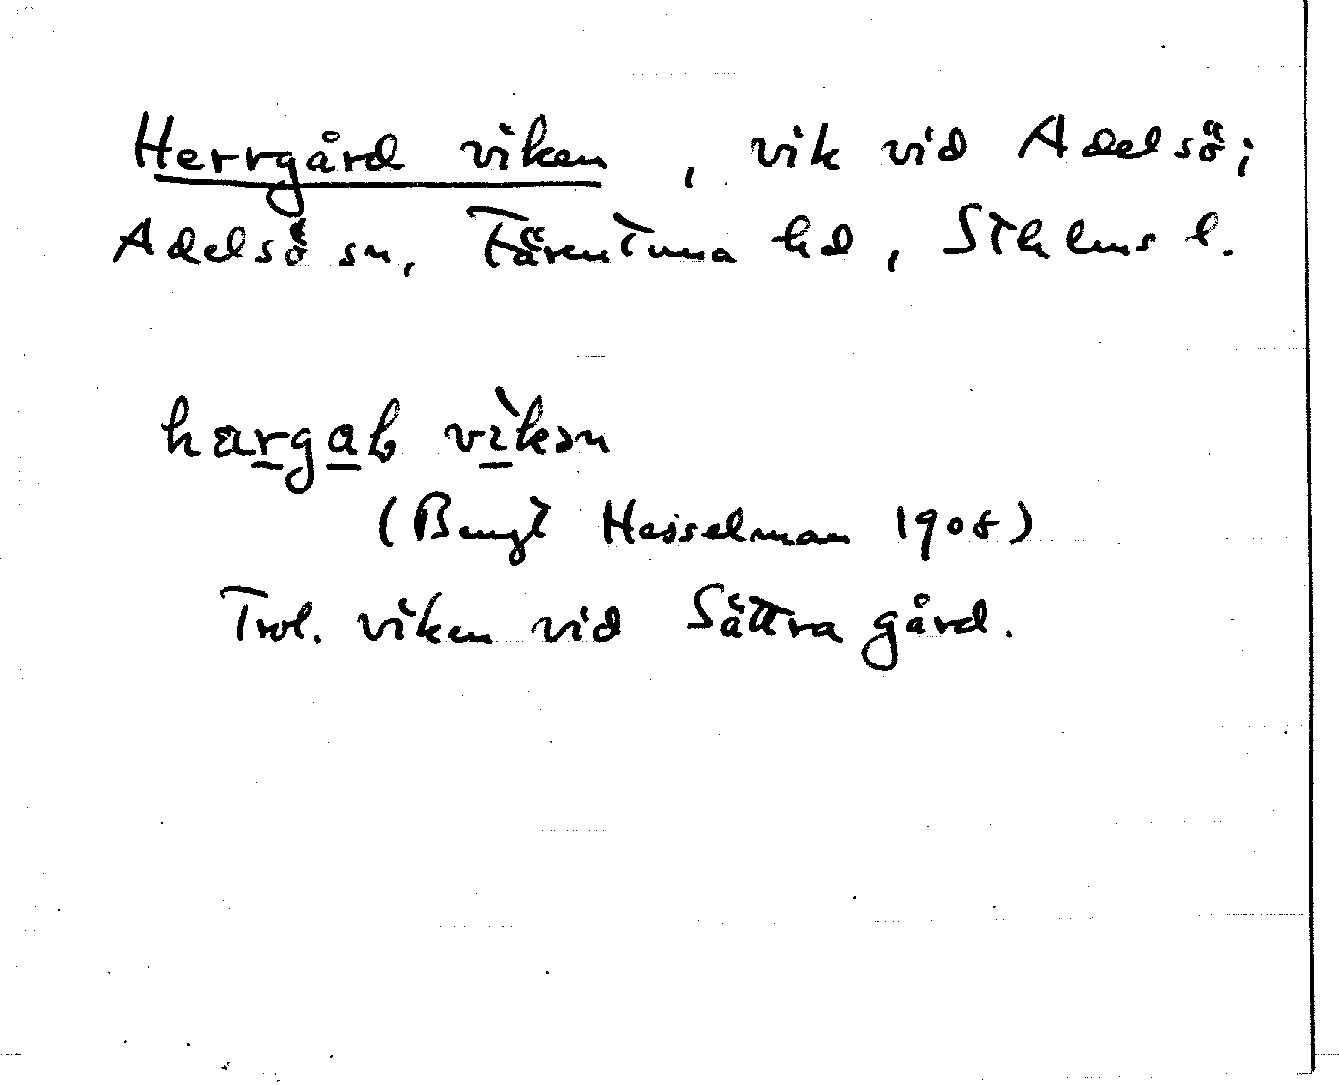 Herrgård viken, vik vid Adelsö;
Adelsö sn, Färentuna hd, Sthlms l.
hargab vikən
(Bengt Hesselman 1905)
Trol. viken vid Sättra gård.